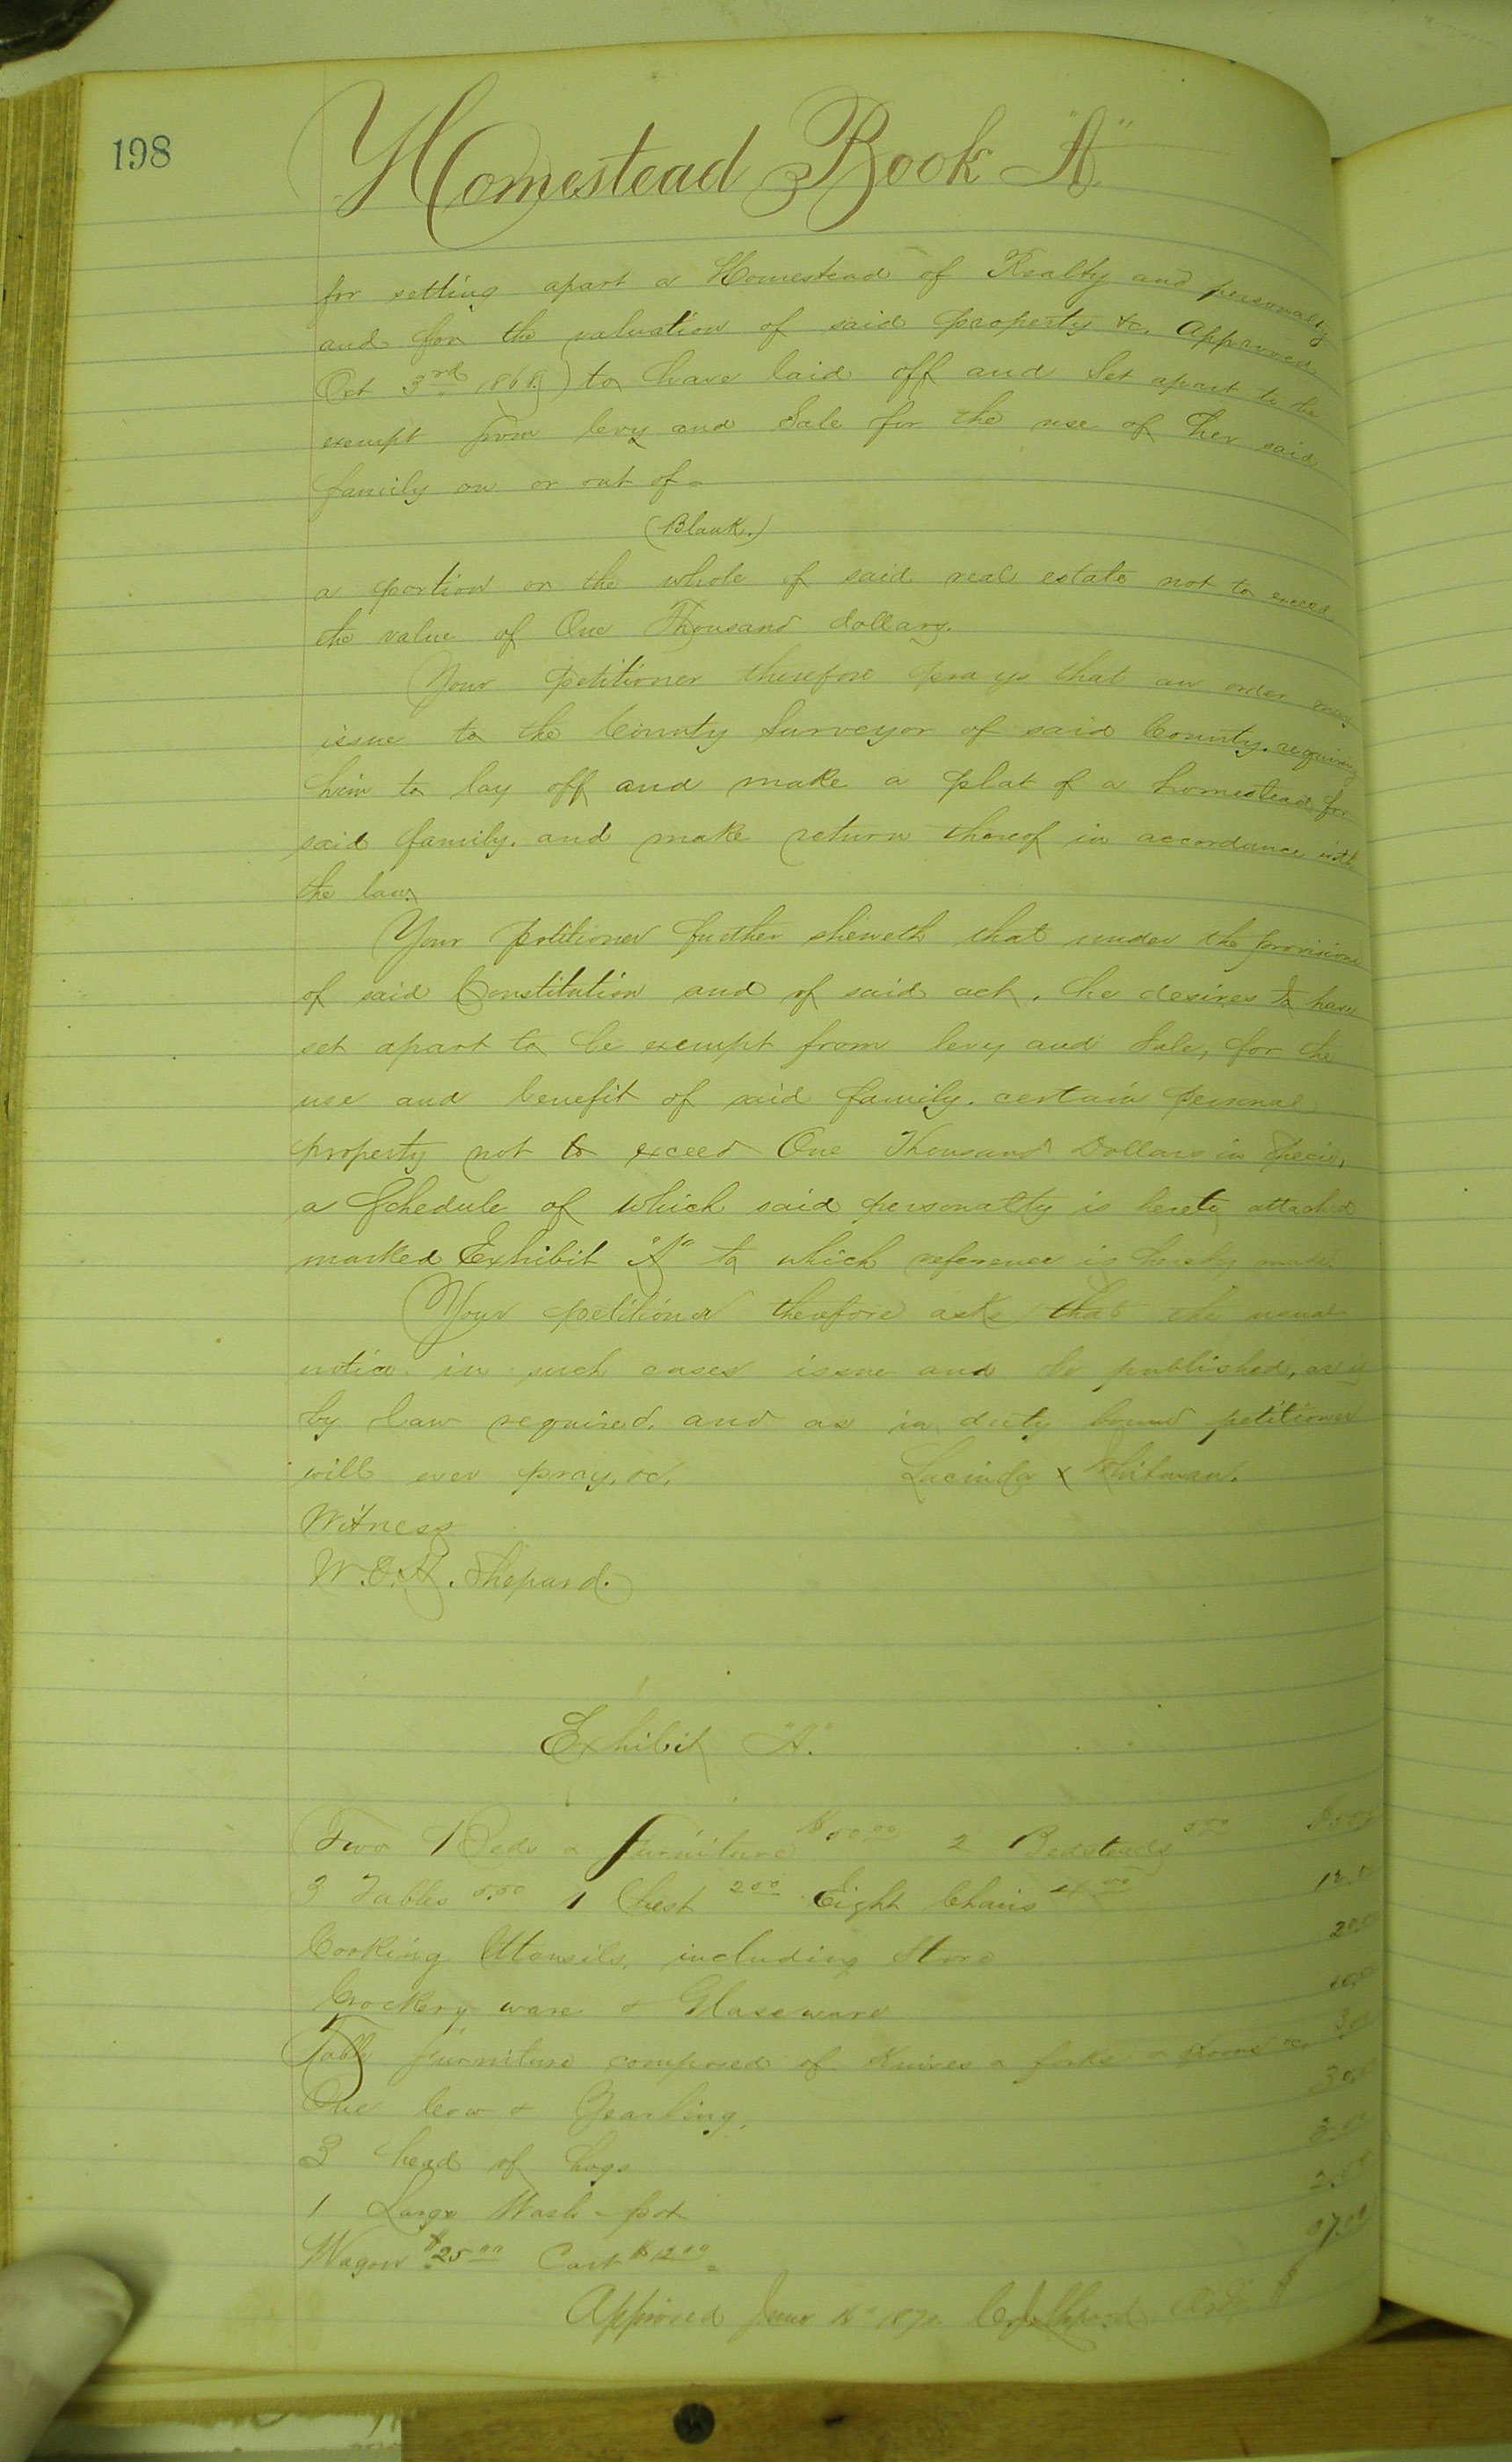 198
Homestead Book "A"
for setting apart a Homestead of Realty and personalty
and for the valuation of said property &c. Approved
Oct 3rd 1868) to have laid off and Set apart to be
exempt from levy and Sale for the use of her said
family on or out of
(Blank.)
a portion or the whole of said real estate not to exceed
the value of One Thousand dollars.
Your petitioner therefore prays that an order may
issue to the County Surveyor of said County. requiring
him to lay off and make a plat of a homestead for
said family. and make return thereof in accordance with
the law.
Your petitioner further sheweth that under the provisions
of said Constitution and of said act, she desires to have
set apart to be exempt from levy and Sale, for the
use and benefit of said family. certain personal
property not to exceed One Thousand Dollars in Specie,
a Schedule of which said personalty is hereto attached
marked Exhibit "A" to which reference is hereby made.
Your petitioner therefore asks that the usual
notice in such cases issue and be published, as is
by law required, and as in duty bound petitioner
will ever pray, &c. Lucinda x Whitman.
Witness
W.. Shepard.
Exhibit "A".
Two Beds & furniture $50.00 2 Bedsteads 5.00
3 Tables 5.00 1 Chest 2.00 Eight Chairs 4.00
Cooking Utensils, including Stove
Crockery ware & Glassware
Table furniture composed of Knives & forks & spoons &c. 3.00
One Cow & Yearling,
3 head of hogs
1 Large Wash-pot
Wagon $25.00 Cart $12.00
Approved June